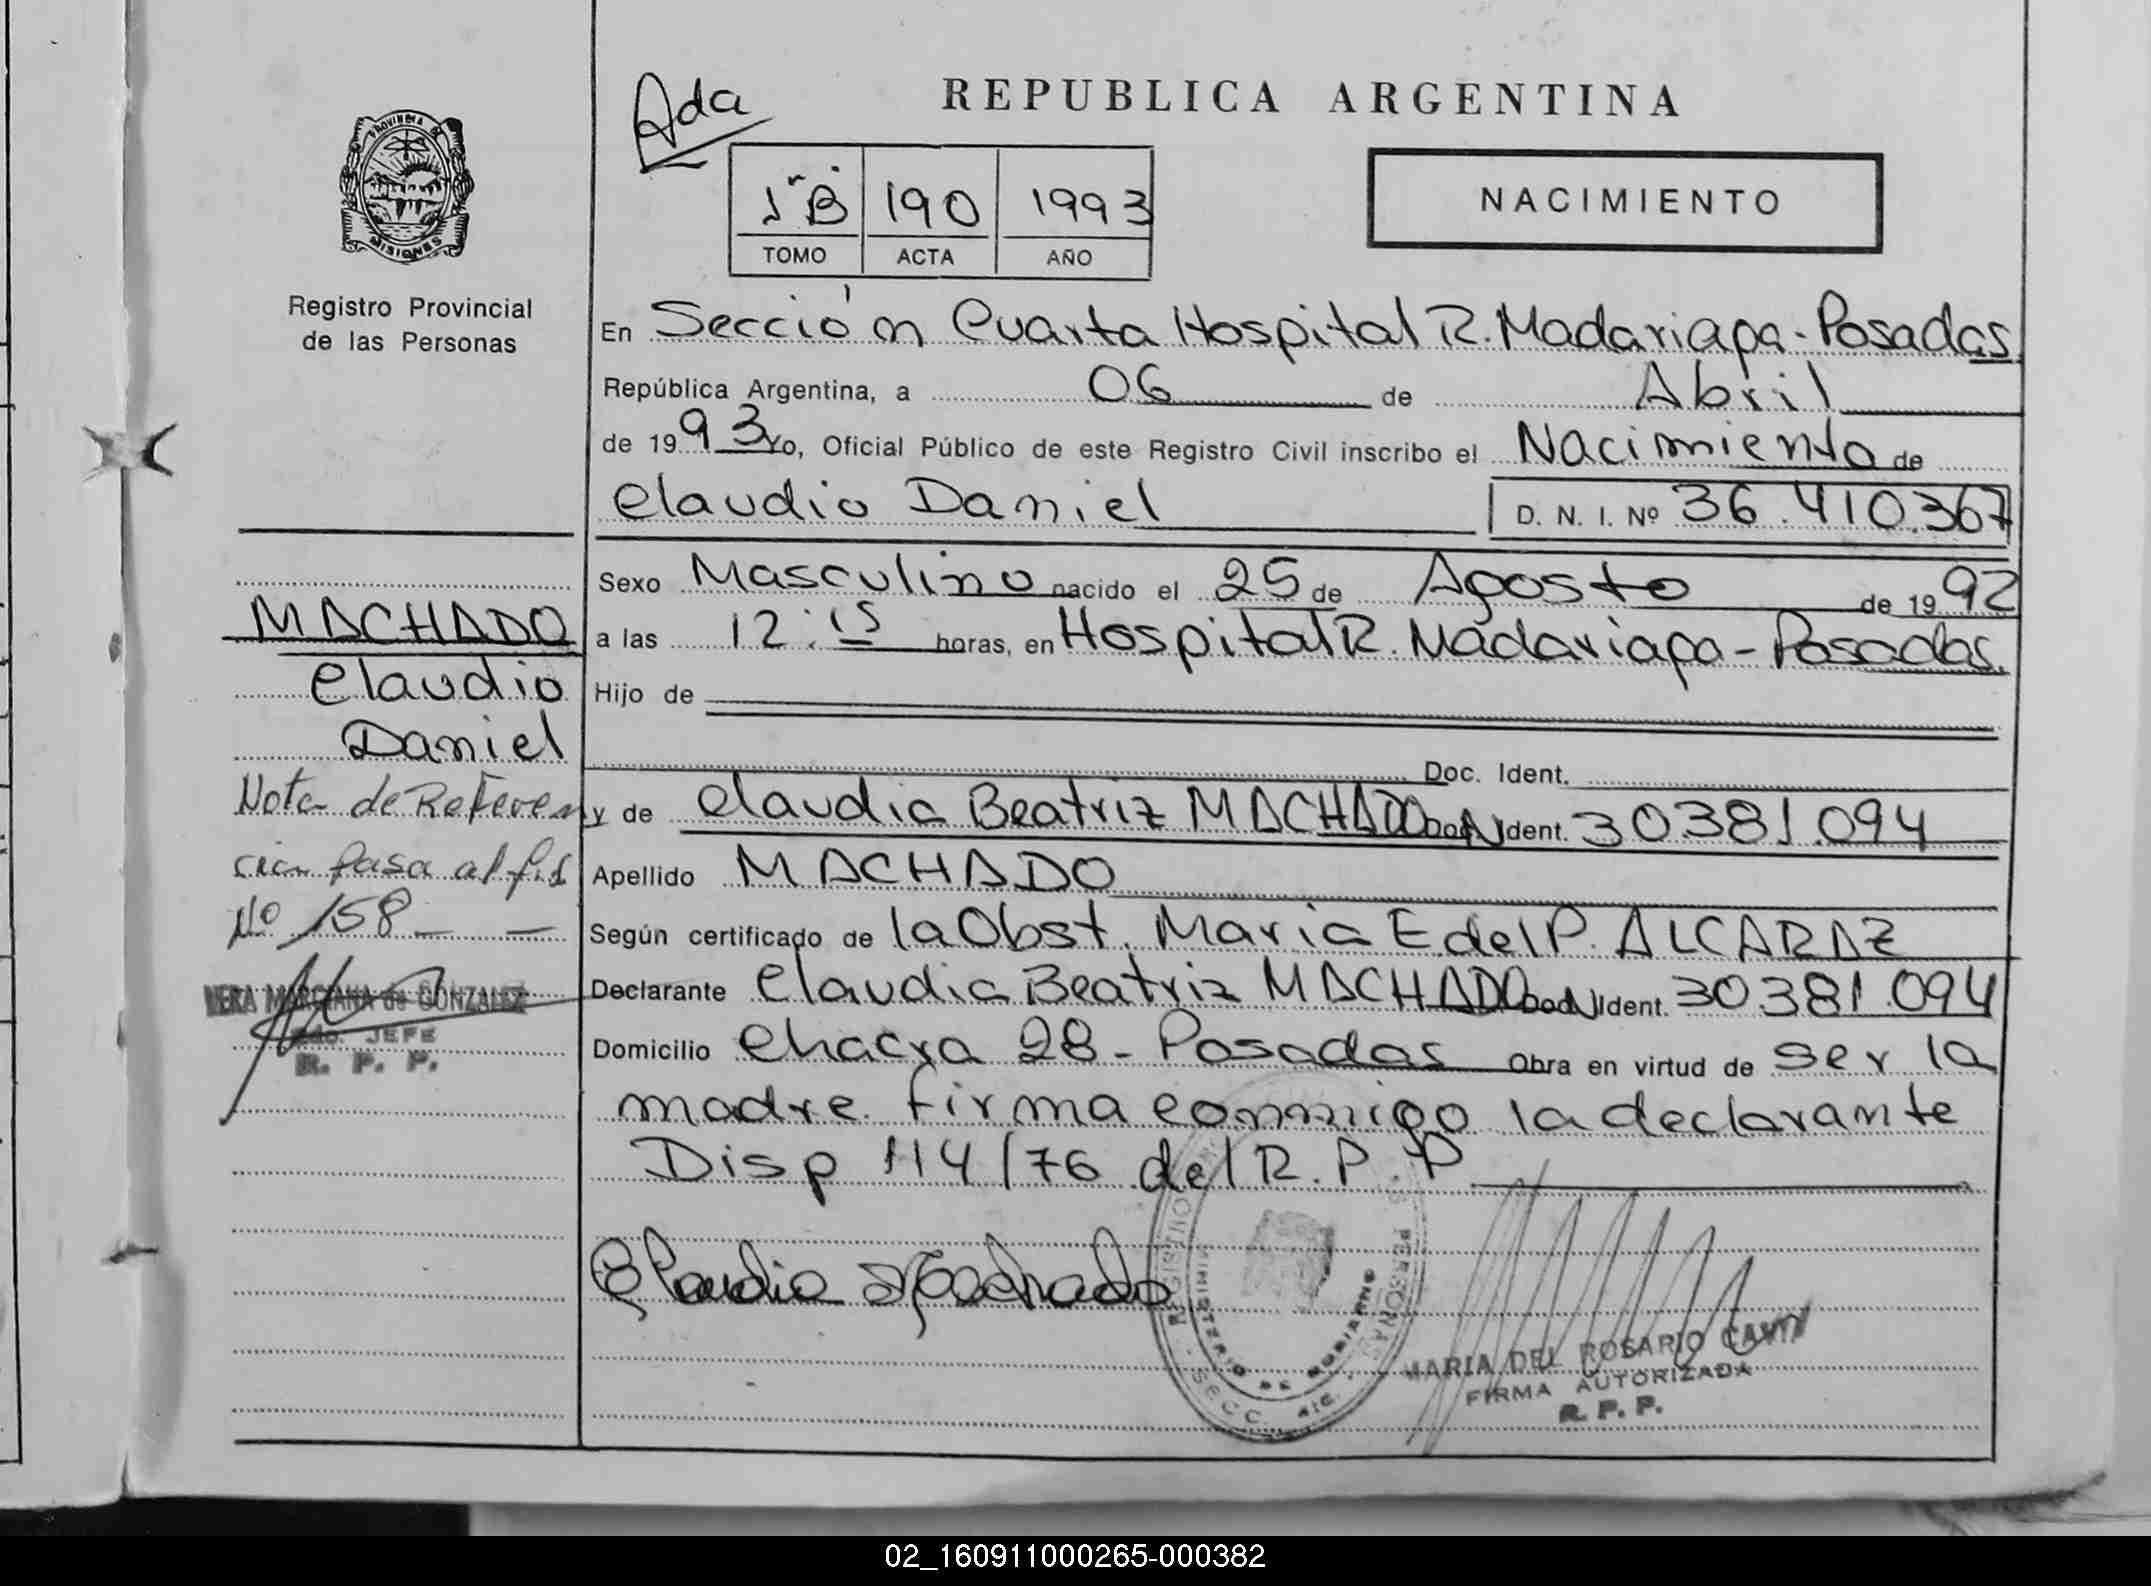 Ada
REPUBLICA ARGENTINA
NACIMIENTO
1º B 190 1993
TOMO ACTA AÑO
PROVINCIA DE
MISIONES
Registro Provincial
de las Personas
En Sección Cuarta Hospital R. Madariaga - Posadas
República Argentina, a 06 de Abril
de 1993 Yo, Oficial Público de este Registro Civil inscribo el Nacimiento de
Claudio Daniel D. N. I. Nº 36.410.367
Sexo Masculino nacido el 25 de Agosto de 1992
a las 12:15 horas, en Hospital R. Madariaga - Posadas.
Hijo de
Doc. Ident.
y de Claudia Beatriz MACHADO Doc. Ident. 30381.094
Apellido MACHADO
Según certificado de la Obst. Maria E del P. ALCARAZ
Declarante Claudia Beatriz MACHADO Doc. Ident. 30381.094
Domicilio Chacra 28 - Posadas Obra en virtud de ser la
madre. Firma conmigo la declarante
Disp 114/76 del R. P. P
Claudia Machado
MACHADO
Claudio
Daniel
Nota de Referen
cia pasa al fol
Nº 158
VERA MARCIANA de GONZALEZ
JEFE
R. P. P.
PERSONAS
MINISTERIO DE GOBIERNO
SECC.
MARIA DEL ROSARIO
FIRMA AUTORIZADA
R. P. P.
02_160911000265-000382